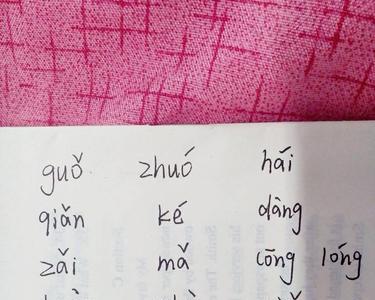 guǒ zhuó hái
qiǎn ké dàng
zǎi mǎ cōng lóng